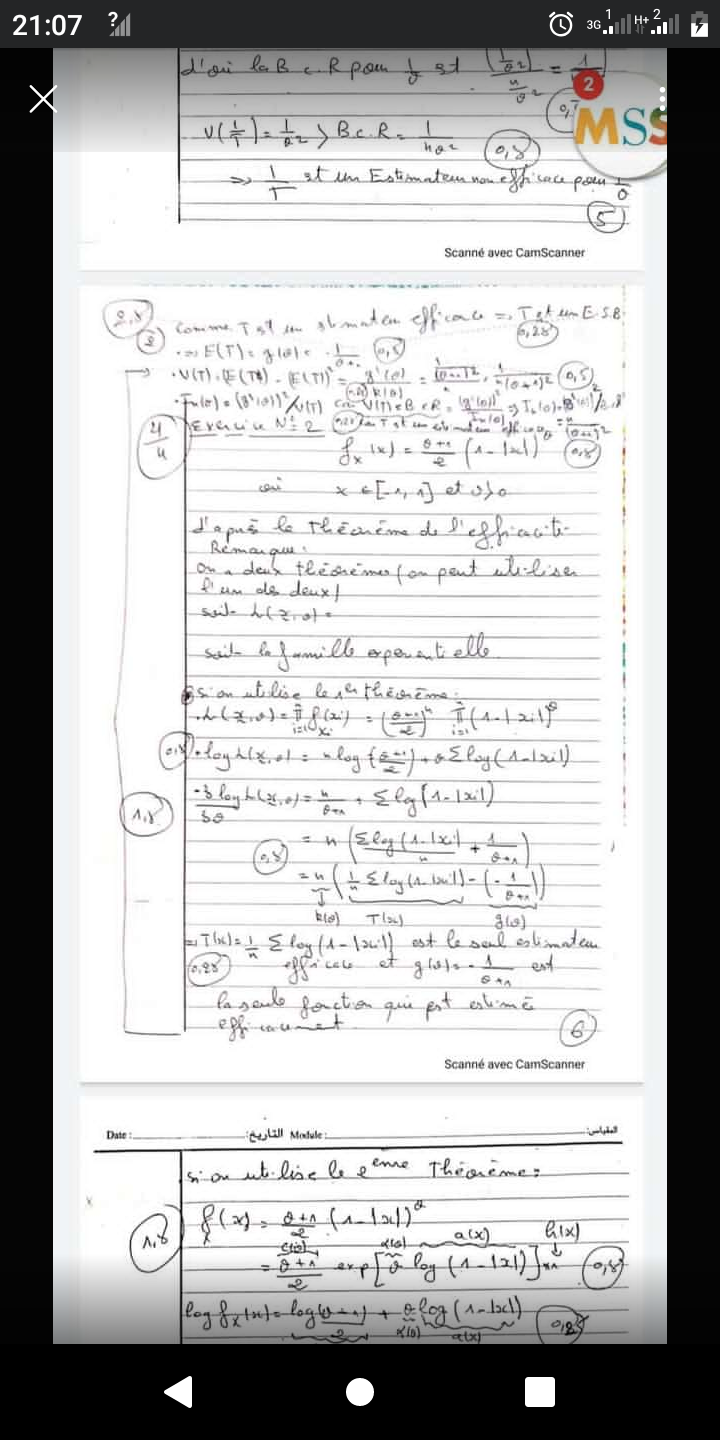 21:07
3G 1 H+ 2
d'où la B.C.R pour 1/θ est (1/θ²)² / (n/θ²) = 1
2
MSS
V(1/T) = 1/θ² > B.C.R = 1/nθ²
0,5
=> 1/T est un Estimateur non efficace pour 1/θ
5
Scanné avec CamScanner
2,5
2
Comme T est un estimateur efficace => T est un E.S.B.
0,25
=> E(T) = g(θ) = - 1/(θ+1)
0,5
0,5
4/4
Exercice N° 2
f_X(x) = (θ+1)/2 (1-|x|)^θ
0,5
où x ∈ [-1, 1] et θ > 0
d'après le Théorème de l'efficacité
Remarque:
on a deux théorèmes (on peut utiliser
l'un des deux)
soit L(x, θ) =
soit la famille exponentielle
si on utilise le 1er théorème:
. L(x, θ) = ∏ f(xi) = ((θ+1)/2)^n ∏ (1-|xi|)^θ
0,5 . log L(x, θ) = n log((θ+1)/2) + θ Σ log(1-|xi|)
∂ log L(x, θ)/∂θ = n/(θ+1) + Σ log(1-|xi|)
1,5
= n (Σ log(1-|xi|)/n + 1/(θ+1))
0,5
= n (1/n Σ log(1-|xi|) - (-1/(θ+1)))
k(θ) T(x) g(θ)
=> T(x) = 1/n Σ log(1-|xi|) est le seul estimateur
0,25 efficace et g(θ) = - 1/(θ+1) est
la seule fonction qui est estimée
efficacement
6
Scanné avec CamScanner
Date : التاريخ: Module : المقياس:
si on utilise le 2ème Théorème:
1,5
f_X(x) = (θ+1)/2 (1-|x|)^θ
c(θ) α(θ) a(x) h(x)
= (θ+1)/2 exp[θ log(1-|x|)] × 1
0,5
log f_X(x) = log (θ+1)/2 + θ log(1-|x|)
α(θ) a(x)
0,25